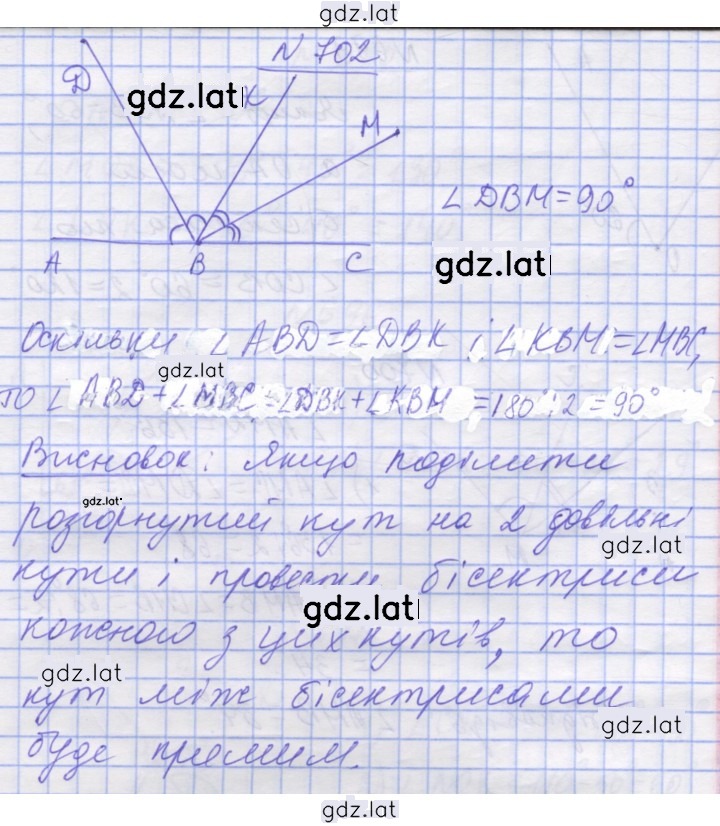 gdz.lat
N 702
D
gdz.lat
K
M
∠DBM=90°
A B C
gdz.lat
Оскільки ∠ABD=∠DBK і ∠KBM=∠MBC,
gdz.lat
то ∠ABD+∠MBC=∠DBK+∠KBM=180°:2=90°
Висновок: Якщо поділити
gdz.lat
розгорнутий кут на 2 довільні
gdz.lat
кути і провести бісектриси
gdz.lat
кожного з цих кутів, то
gdz.lat
кут між бісектрисами
gdz.lat
буде прямим.
gdz.lat